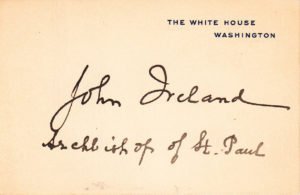 THE WHITE HOUSE
WASHINGTON
John Ireland
Archbishop of St. Paul